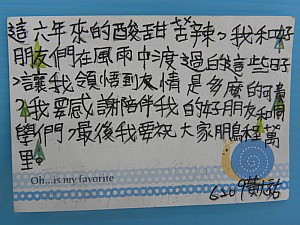 這六年來的酸甜苦辣,我和好
朋友們在風雨中渡過的這些日子
,讓我領悟到友情是多麼的可貴
,我要感謝陪伴我的好朋友和同
學們,最後我要祝大家鵬程萬
里。
Oh...is my favorite